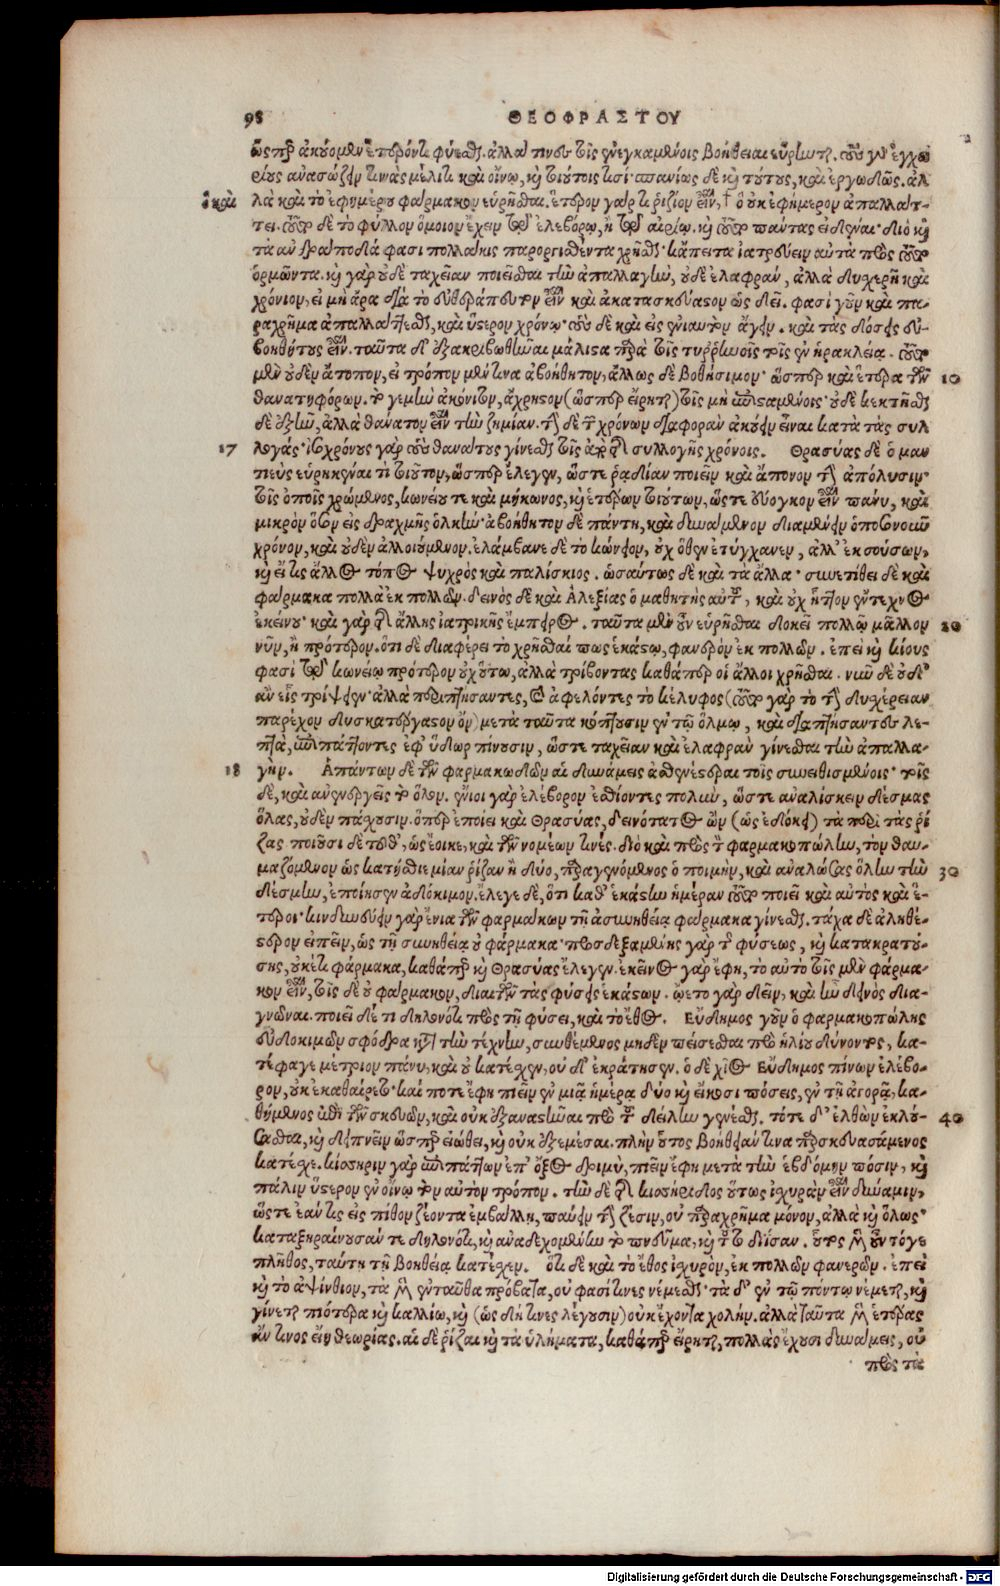 98 ΘΕΟΦΡΑΣΤΟΥ
ὥσπερ ἀκούομεν ἕτερόν τι φύεσθαι. ἀλλά τινος τοῖς ἐνεγκαμένοις βοήθειαι εὕρηνται. τοὺς γὰρ ἐγχω
ρίους ἀνασώζειν τινὰς μέλιτι καὶ οἴνῳ, καὶ τοιούτοις τισί. σπανίως δὲ καὶ τούτους, καὶ ἐργωδῶς. ἀλ
ὃ καὶ
λὰ καὶ τὸ ἐφημέρου φάρμακον εὑρῆσθαι. ἕτερον γάρ τι ῥιζίον εἶναι, † ὃ οὐκ ἐφήμερον ἀπαλλάτ-
τει. τοῦτο δὲ τὸ φύλλον ὅμοιον ἔχειν τῷ ἐλεβόρῳ, ἢ τῷ λειρίῳ. καὶ τοῦτο πάντας εἰδέναι. διὸ καὶ
τὰ ἀνδράποδά φασι πολλάκις παροργισθέντα χρῆσθαι. κἄπειτα ἰατρεύειν αὐτὰ πρὸς τοῦτο
ὁρμῶντα. καὶ γὰρ οὐδὲ ταχεῖαν ποιεῖσθαι τὴν ἀπαλλαγὴν, οὐδὲ ἐλαφρὰν, ἀλλὰ δυχερῆ καὶ
χρόνιον, εἰ μὴ ἄρα διὰ τὸ εὐθεράπευτον εἶναι καὶ ἀκατασκεύαστον ὡς δεῖ. φασὶ γοῦν καὶ πα-
ραχρῆμα ἀπαλλάττεσθαι, καὶ ὕστερον χρόνῳ· τοὺς δὲ καὶ εἰς ἐνιαυτὸν ἄγειν. καὶ τὰς δόσεις ἀ-
βοηθήτους εἶναι. ταῦτα δ' ἐξακριβωθῆναι μάλιστα παρὰ τοῖς τυρρηνοῖς τοῖς ἐν ἡρακλείᾳ. τοῦτο
μὲν οὐδὲν ἄτοπον, εἰ τρόπον μέν τινα ἀβοήθητον, ἄλλως δὲ βοηθήσιμον· ὥσπερ καὶ ἕτερα τῶν 10
θανατηφόρων. τὸ γεμὴν ἀκόνιτον, ἄχρηστον (ὥσπερ εἴρηται) τοῖς μὴ ἐπισταμένοις· οὐδὲ κεκτῆσθαι
δὲ ἐξεῖναι, ἀλλὰ θάνατον εἶναι τὴν ζημίαν. τὴν δὲ τῶν χρόνων διαφορὰν ἀκολουθεῖν εἶναι κατὰ τὰς συλ
17 λογάς· ἰσοχρόνους γὰρ τοὺς θανάτους γίνεσθαι τοῖς ἀπὸ τῆς συλλογῆς χρόνοις. Θρασύας δὲ ὁ μαν
τινεὺς εὑρηκέναι τὶ τοιοῦτον, ὥσπερ ἔλεγεν, ὥστε ῥᾳδίαν ποιεῖν καὶ ἄπονον τὴν ἀπόλυσιν·
τοῖς ὀποῖς χρώμενος, κωνείου τε καὶ μήκωνος, καὶ ἑτέρων τοιούτων, ὥστε εὔογκον εἶναι πάνυ, καὶ
μικρὸν ὅσον εἰς δραχμῆς ὁλκήν· ἀβοήθητον δὲ πάντῃ, καὶ δυνάμενον διαμένειν ὁποσονοῦν
χρόνον, καὶ οὐδὲν ἀλλοιούμενον. ἐλάμβανε δὲ τὸ κώνειον, οὐχ ὅθεν ἐτύγχανεν, ἀλλ' ἐκ σούσων,
καὶ εἴ τις ἄλλος τόπος ψυχρὸς καὶ παλίσκιος. ὡσαύτως δὲ καὶ τὰ ἄλλα· συνετίθει δὲ καὶ
φάρμακα πολλὰ ἐκ πολλῶν. δεινὸς δὲ καὶ Ἀλεξίας ὁ μαθητὴς αὐτοῦ, καὶ οὐχ ἧττον ἔντεχνος
ἐκείνου· καὶ γὰρ τῆς ἄλλης ἰατρικῆς ἔμπειρος. ταῦτα μὲν οὖν εὑρῆσθαι δοκεῖ πολλῷ μᾶλλον 20
νῦν, ἢ πρότερον. ὅτι δὲ διαφέρει τὸ χρῆσθαί πως ἑκάστῳ, φανερὸν ἐκ πολλῶν. ἐπεὶ καὶ κίους
φασὶ τῷ κωνείῳ πρότερον οὐχ οὕτω, ἀλλὰ τρίβοντας καθάπερ οἱ ἄλλοι χρῆσθαι. νῦν δὲ οὐδ'
ἂν εἷς τρίψειεν· ἀλλὰ περιπτίσαντες, καὶ ἀφελόντες τὸ κέλυφος (τοῦτο γὰρ τὸ τὴν δυχέρειαν
παρέχον δυσκατέργαστον ὂν) μετὰ ταῦτα κόπτουσιν ἐν τῷ ὅλμῳ, καὶ διαττήσαντες λε-
πτὰ, ἐπιπάττοντες ἐφ' ὕδωρ πίνουσιν, ὥστε ταχεῖαν καὶ ἐλαφρὰν γίνεσθαι τὴν ἀπαλλα-
18 γήν. Ἁπάντων δὲ τῶν φαρμακωδῶν αἱ δυνάμεις ἀσθενέστεραι τοῖς συνειθισμένοις· τοῖς
δὲ, καὶ ἀνενεργεῖς τὸ ὅλον. ἔνιοι γὰρ ἐλέβορον ἐσθίοντες πολὺν, ὥστε ἀναλίσκειν δέσμας
ὅλας, οὐδὲν πάχουσιν. ὅπερ ἐποίει καὶ Θρασύας, δεινότατος ὢν (ὡς ἐδόκει) τὰ περὶ τὰς ῥί
ζας. ποιοῦσι δὲ τοῦθ', ὡς ἔοικε, καὶ τῶν νομέων τινές. διὸ καὶ πρὸς τὸν φαρμακοπώλην, τὸν θαυ-
μαζόμενον ὡς κατήσθιε μίαν ῥίζαν ἢ δύο, παραγενόμενος ὁ ποιμὴν, καὶ ἀναλώσας ὅλην τὴν 30
δέσμην, ἐποίησεν ἀδόκιμον. ἔλεγε δὲ, ὅτι καθ' ἑκάστην ἡμέραν τοῦτο ποιεῖ καὶ αὐτὸς καὶ ἕ-
τεροι· κινδυνεύειν γὰρ ἔνια τῶν φαρμάκων τῇ ἀσυνηθείᾳ φάρμακα γίνεσθαι. τάχα δὲ ἀληθέ-
στερον εἰπεῖν, ὡς τῇ συνηθείᾳ οὐ φάρμακα· προσδεξαμένης γὰρ τῆς φύσεως, καὶ κατακρατού-
σης, οὐκέτι φάρμακα, καθάπερ καὶ Θρασύας ἔλεγεν. ἐκεῖνος γὰρ ἔφη, τὸ αὐτὸ τοῖς μὲν φάρμα-
κον εἶναι, τοῖς δὲ οὐ φάρμακον, διαιρῶν τὰς φύσεις ἑκάστων. ᾤετο γὰρ δεῖν, καὶ ἦν δεινὸς δια-
γνῶναι. ποιεῖ δέ τι δηλονότι πρὸς τῇ φύσει, καὶ τὸ ἔθος. Εὔδημος γοῦν ὁ φαρμακοπώλης
εὐδοκιμῶν σφόδρα κατὰ τὴν τέχνην, συνθέμενος μηδὲν πείσεσθαι πρὸ ἡλίου δύνοντος, κα-
τέφαγε μέτριον πάνυ, καὶ οὐ κατέχεν, οὐδ' ἐκράτησεν. ὁ δὲ χῖος Εὔδημος πίνων ἐλέβο-
ρον, οὐκ ἐκαθαίρετο· καί ποτε ἔφη πιεῖν ἐν μιᾷ ἡμέρᾳ δύο καὶ εἴκοσι πόσεις, ἐν τῇ ἀγορᾷ, κα-
θήμενος ἐπὶ τῶν σκευῶν, καὶ οὐκ ἐξαναστῆναι πρὸ τοῦ δείλην γενέσθαι. τότε δ' ἐλθὼν ἐκλού- 40
σασθαι, καὶ δειπνεῖν ὥσπερ εἰώθει, καὶ οὐκ ἐξεμέσαι. πλὴν οὗτος βοήθειάν τινα παρασκευασάμενος
κατέσχε. κίσσηριν γὰρ ἐπιπάττων ἐπ' ὄξος δριμὺ, πιεῖν ἔφη μετὰ τὴν ἑβδόμην πόσιν, καὶ
πάλιν ὕστερον ἐν οἴνῳ τὸν αὐτὸν τρόπον. τὴν δὲ τῆς κισσήριδος οὕτως ἰσχυρὰν εἶναι δύναμιν,
ὥστε ἐάν τις εἰς πίθον ζέοντα ἐμβάλλῃ, παύειν τὴν ζέσιν, οὐ παραχρῆμα μόνον, ἀλλὰ καὶ ὅλως·
καταξηραίνουσάν τε δηλονότι, καὶ ἀναδεχομένην τὸ πνεῦμα, καὶ τοῦτο διιεῖσαν. οὗτος μὲν οὖν τόγε
πλῆθος, ταύτῃ τῇ βοηθείᾳ κατέχεν. ὅτι δὲ καὶ τὸ ἔθος ἰσχυρὸν, ἐκ πολλῶν φανερόν. ἐπεὶ
καὶ τὸ ἀψίνθιον, τὰ μὲν ἐνταῦθα πρόβατα, οὔ φασί τινες νέμεσθαι· τὰ δ' ἐν τῷ πόντῳ νέμεται, καὶ
γίνεται πιότερα καὶ καλλίω, καὶ (ὡς δή τινες λέγουσιν) οὐκ ἔχοντα χολήν. ἀλλὰ ταῦτα μὲν ἑτέρας
ἄν τινος εἴη θεωρίας. αἱ δὲ ῥίζαι καὶ τὰ ὑλήματα, καθάπερ εἴρηται, πολλὰς ἔχουσι δυνάμεις, οὐ
πρὸς τὰ
Digitalisierung gefördert durch die Deutsche Forschungsgemeinschaft - DFG